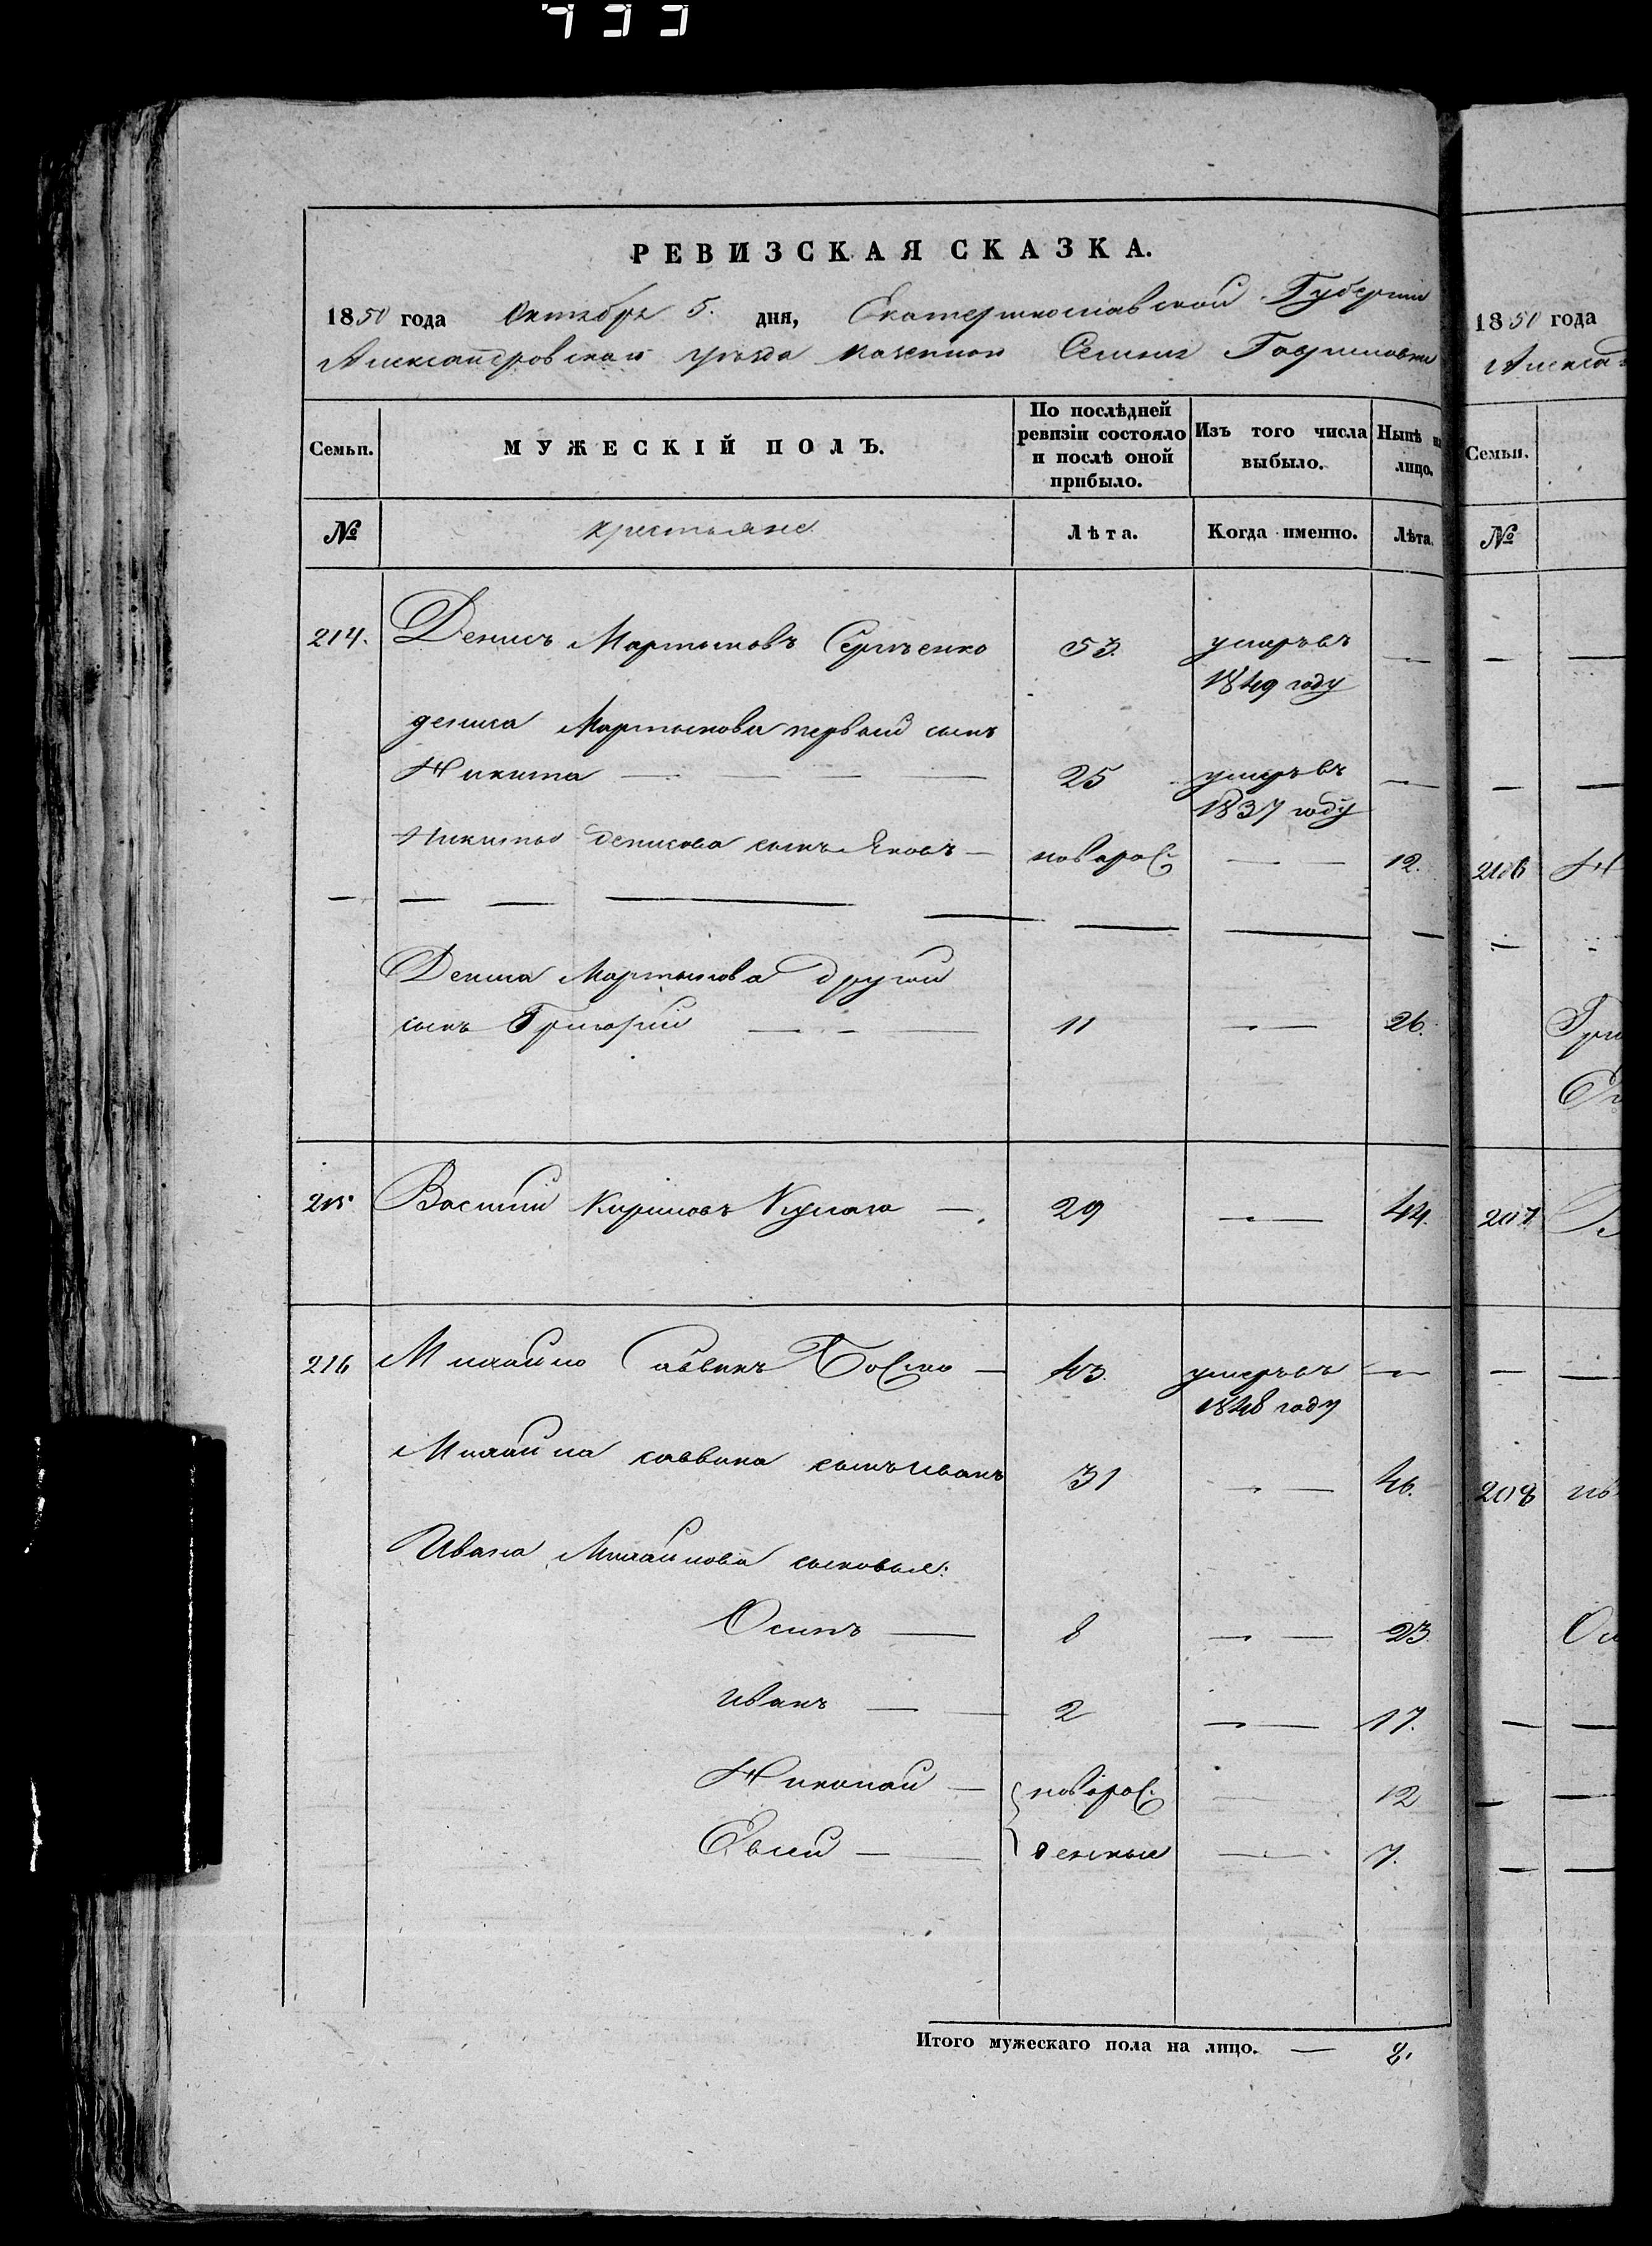 РЕВИЗСКАЯ СКАЗКА.
1850 года Октября 5. дня, Екатеринославской Губернии
Александровского уезда казенного Селения Гавриловки
Семьи. МУЖЕСКІЙ ПОЛЪ. По послѣдней ревизіи состояло и послѣ оной прибыло. Изъ того числа выбыло. Нынѣ на лицо.
№ крестьяне Лѣта. Когда именно. Лѣта.
214. Денисъ Мартыновъ Сергѣенко 53. умеръ въ —
1849 году
дениса Мартынова первый сынъ
Никита — — — — 25 умеръ въ —
1837 году
Никиты Денисова сынъ Яковъ — новорож — — 12.
Дениса Мартынова другой
сынъ Григорий — - — 11 — — 26.
215 Василий Кириловъ —. 29 — — 44.
216 Михайло Саввинъ — 43. умеръ въ —
1848 году
Михайла саввина сынъ иванъ 31 — — 46.
Ивана Михайлова сыновья:
Осипъ — 8 — — 23.
иванъ — — 2 — — 17.
Николай — новорож — 12
Евсей — — денные — 7.
Итого мужескаго пола на лицо. — 8.
1850 года
Алекса
Семьи.
№
206 Н
Гри
207
208 ив